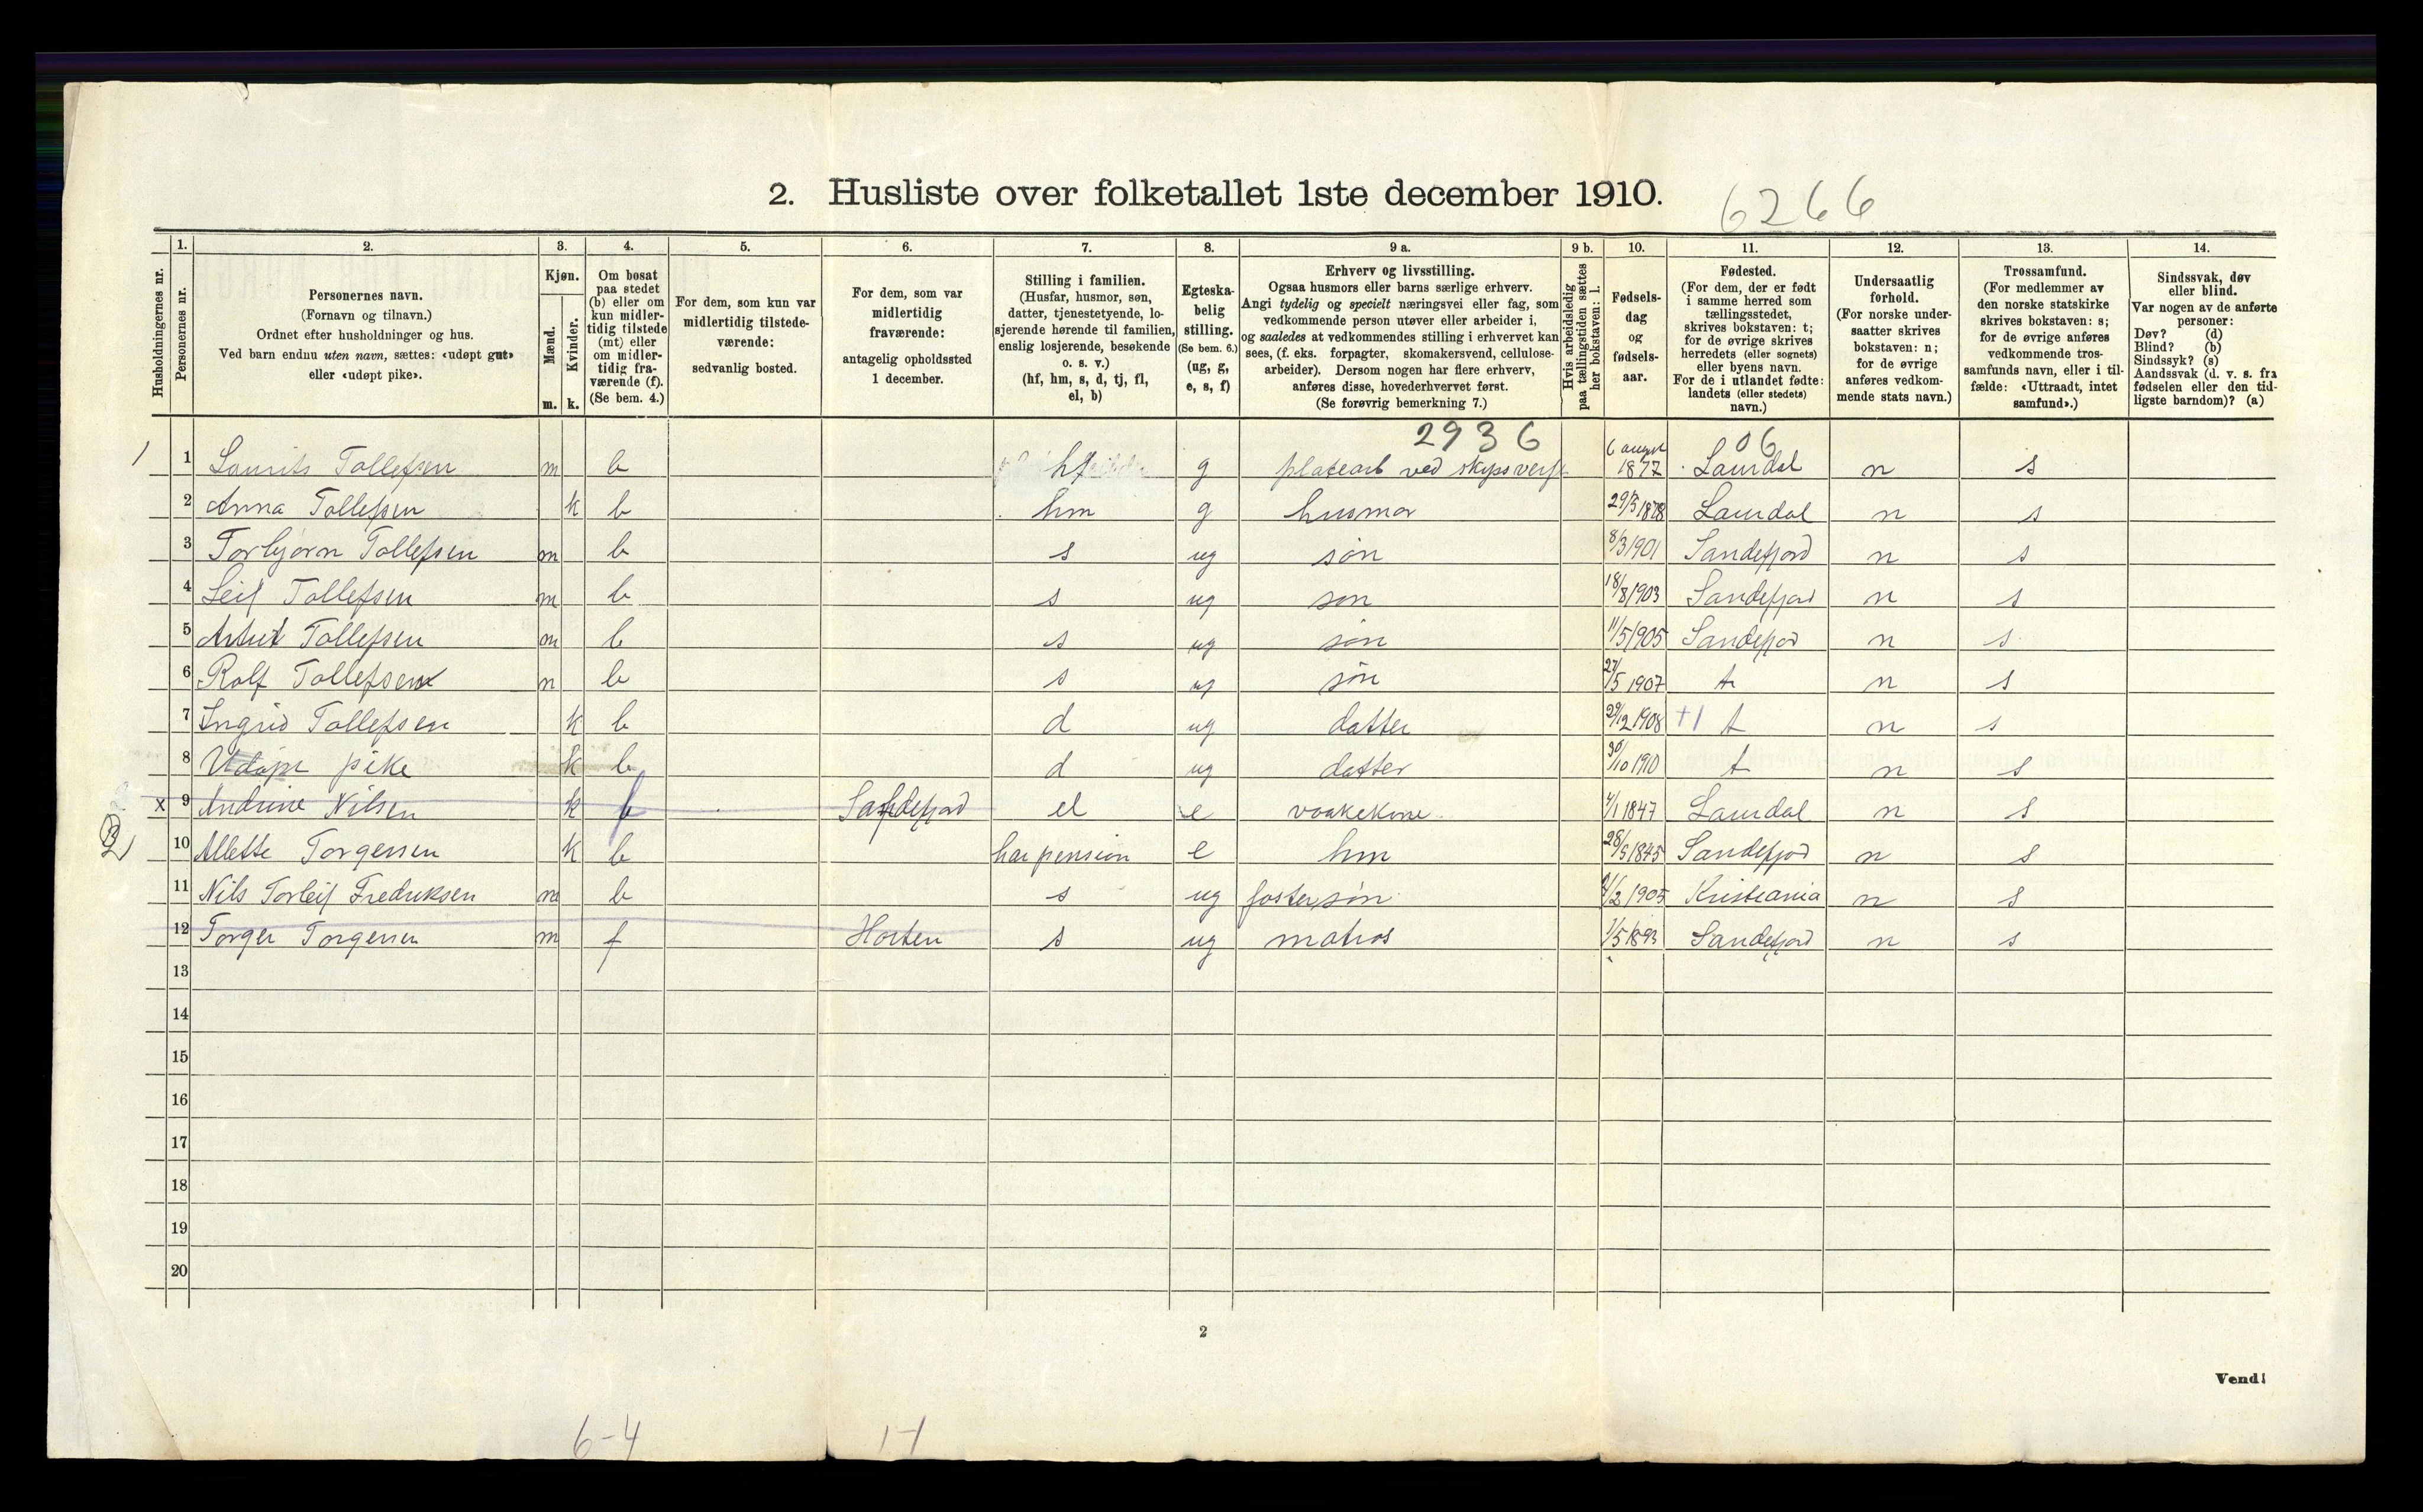 2. Husliste over folketallet 1ste december 1910.
6266
Husholdningernes nr.
1.
Personernes nr.
2.
Personernes navn.
(Fornavn og tilnavn.)
Ordnet efter husholdninger og hus.
Ved barn endnu uten navn, sættes: «udøpt gut»
eller «udøpt pike».
3.
Kjøn.
Mænd.
Kvinder.
m. k.
4.
Om bosat
paa stedet
(b) eller om
kun midler-
tidig tilstede
(mt) eller
om midler-
tidig fra-
værende (f).
(Se bem. 4.)
5.
For dem, som kun var
midlertidig tilstede-
værende:
sedvanlig bosted.
6.
For dem, som var
midlertidig
fraværende:
antagelig opholdssted
1 december.
7.
Stilling i familien.
(Husfar, husmor, søn,
datter, tjenestetyende, lo-
sjerende hørende til familien,
enslig losjerende, besøkende
o. s. v.)
(hf, hm, s, d, tj, fl,
el, b)
8.
Egteska-
belig
stilling.
(Se bem. 6.)
(ug, g,
e, s, f)
9 a.
Erhverv og livsstilling.
Ogsaa husmors eller barns særlige erhverv.
Angi tydelig og specielt næringsvei eller fag, som
vedkommende person utøver eller arbeider i,
og saaledes at vedkommendes stilling i erhvervet kan
sees, (f. eks. forpagter, skomakersvend, cellulose-
arbeider). Dersom nogen har flere erhverv,
anføres disse, hovederhvervet først.
(Se forøvrig bemerkning 7.)
9 b.
Hvis arbeidsledig
paa tællingstiden sættes
her bokstaven: l.
10.
Fødsels-
dag
og
fødsels-
aar.
11.
Fødested.
(For dem, der er født
i samme herred som
tællingsstedet,
skrives bokstaven: t;
for de øvrige skrives
herredets (eller sognets)
eller byens navn.
For de i utlandet fødte:
landets (eller stedets)
navn.)
12.
Undersaatlig
forhold.
(For norske under-
saatter skrives
bokstaven: n;
for de øvrige
anføres vedkom-
mende stats navn.)
13.
Trossamfund.
(For medlemmer av
den norske statskirke
skrives bokstaven: s;
for de øvrige anføres
vedkommende tros-
samfunds navn, eller i til-
fælde: «Uttraadt, intet
samfund».)
14.
Sindssvak, døv
eller blind.
Var nogen av de anførte
personer:
Døv? (d)
Blind? (b)
Sindssyk? (s)
Aandssvak (d. v. s. fra
fødselen eller den tid-
ligste barndom)? (a)
2936 06
1 1 Laurits Tollefsen m b hf g platearb ved skipsverft 6 august 1877 Laurdal n s
2 Anna Tollefsen k b hm g husmor 29/5 1878 Laurdal n s
3 Torbjørn Tollefsen m b s ug søn 8/3 1901 Sandefjord n s
4 Leif Tollefsen m b s ug søn 18/8 1903 Sandefjord n s
5 Tollefsen m b s ug søn 11/5 1905 Sandefjord n s
6 Rolf Tollefsen n b s ug søn 27/5 1907 t n s
7 Ingrid Tollefsen k b d ug datter 29/12 1908 +1 t n s
8 Udøpt pike k b d ug datter 30/10 1910 t n s
x 9 Andrine Nilsen k f Sandefjord el e vaakekone 4/1 1847 Laurdal n s
2 10 Allette Torgersen k b har pension e hm 28/5 1845 Sandefjord n s
11 Nils Torleif Fredriksen m b s ug fostersøn 1905 Kristiania n s
12 Torger Torgersen m f Horten s ug matros 1/5 1893 Sandefjord n s
13
14
15
16
17
18
19
20
2
Vend!
6-4 1-1